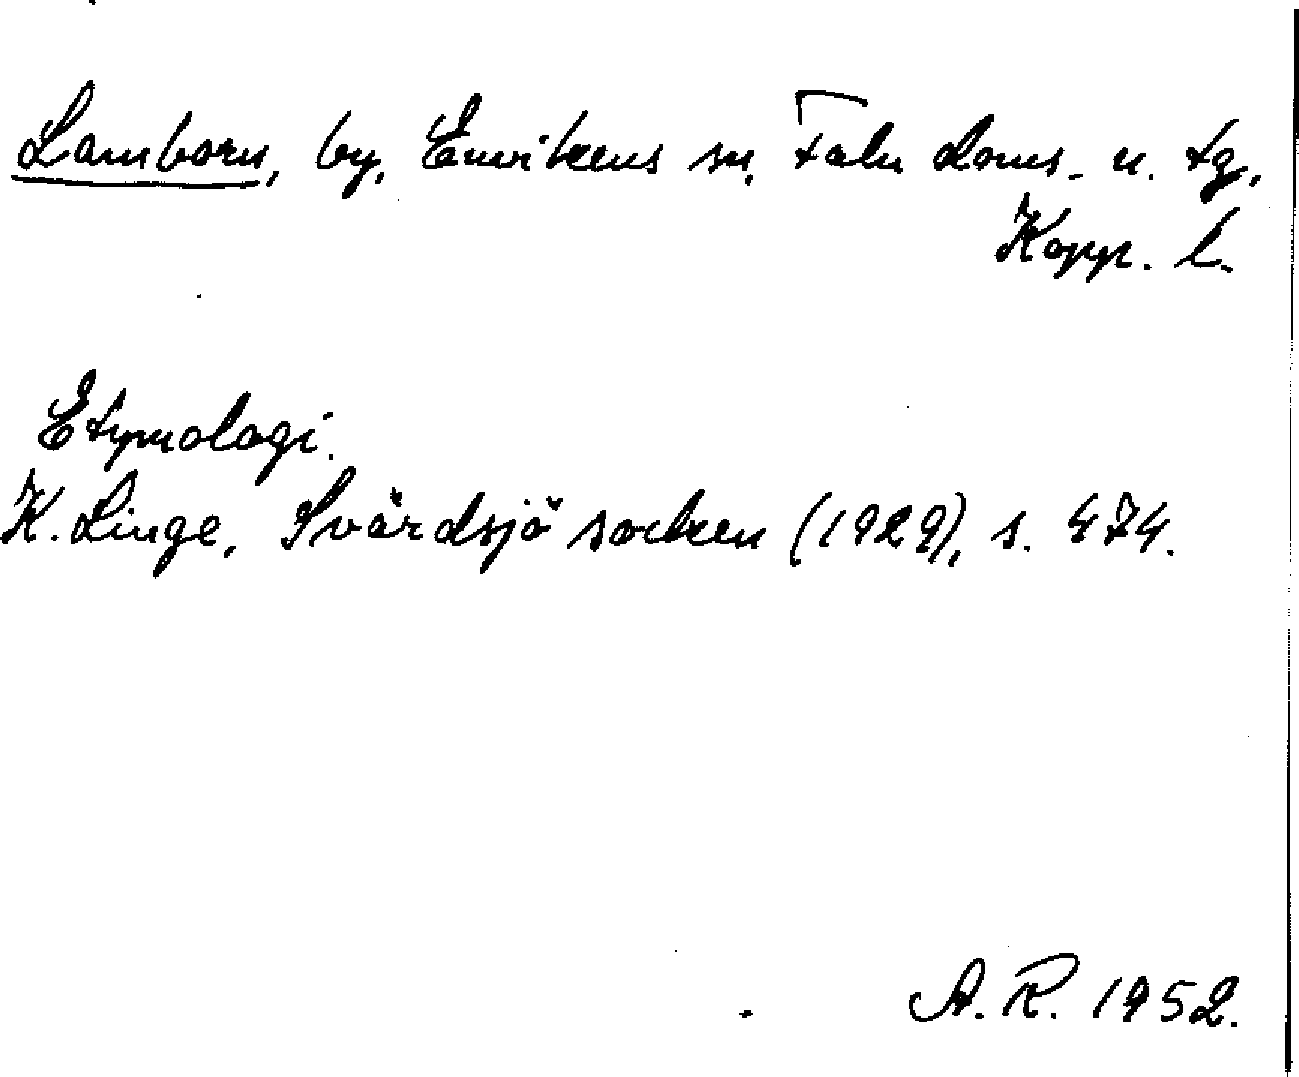 Lamborn, by, Envikens sn, Falu doms. o. tg,
Kopp. l.
Etymologi.
K. Linge, Svärdsjö socken (1929), s. 474.
A. R. 1952.